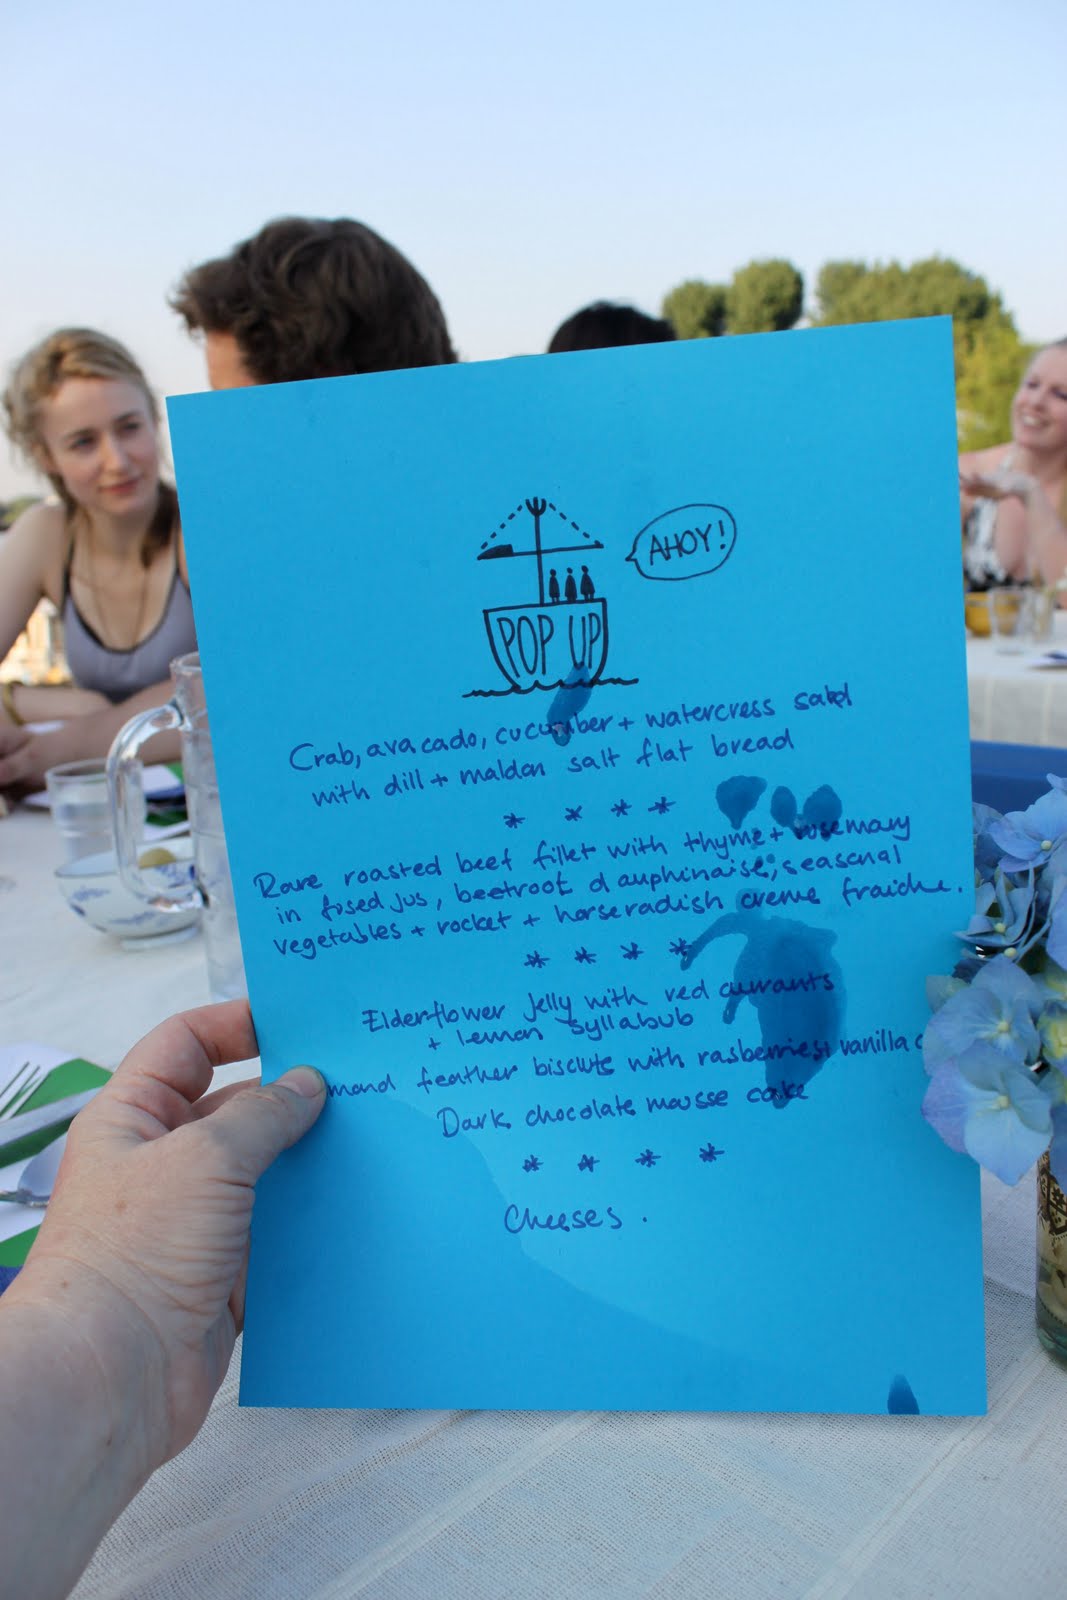 AHOY!
POP UP
Crab, avacado, cucumber + watercress salad
with dill + maldon salt flat bread
* * * *
Rare roasted beef fillet with thyme + rosemary
in fused jus, beetroot dauphinaise, seasonal
vegetables + rocket + horseradish creme fraiche.
* * * *
Elderflower jelly with red currants
+ lemon syllabub
mond feather biscuts with rasberries, vanilla c
Dark chocolate mousse cake
* * * *
Cheeses.